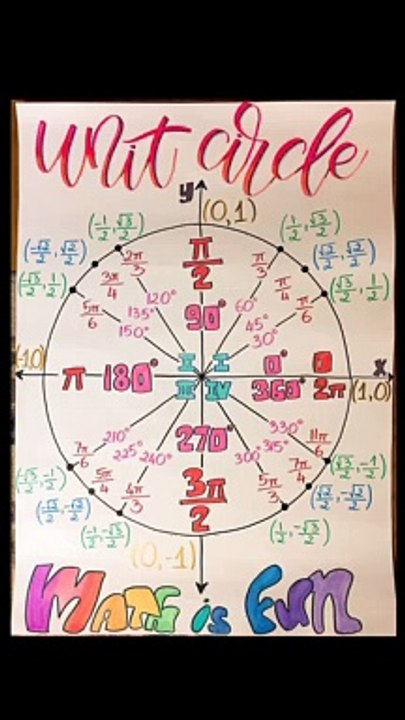 unit circle
y (0,1)
(-1/2, √3/2) (1/2, √3/2)
(-√2/2, √2/2) (√2/2, √2/2)
(-√3/2, 1/2) (√3/2, 1/2)
2π/3 π/2 π/3
3π/4 π/4
5π/6 π/6
120° 90° 60°
135° 45°
150° 30°
(-1,0) π 180° I I 0° 0 x
II IV 360° 2π (1,0)
210° 270° 330°
225° 315°
240° 300°
7π/6 11π/6
5π/4 7π/4
4π/3 3π/2 5π/3
(-√3/2, -1/2) (√3/2, -1/2)
(-√2/2, -√2/2) (√2/2, -√2/2)
(-1/2, -√3/2) (1/2, -√3/2)
(0,-1)
MATH is FUN